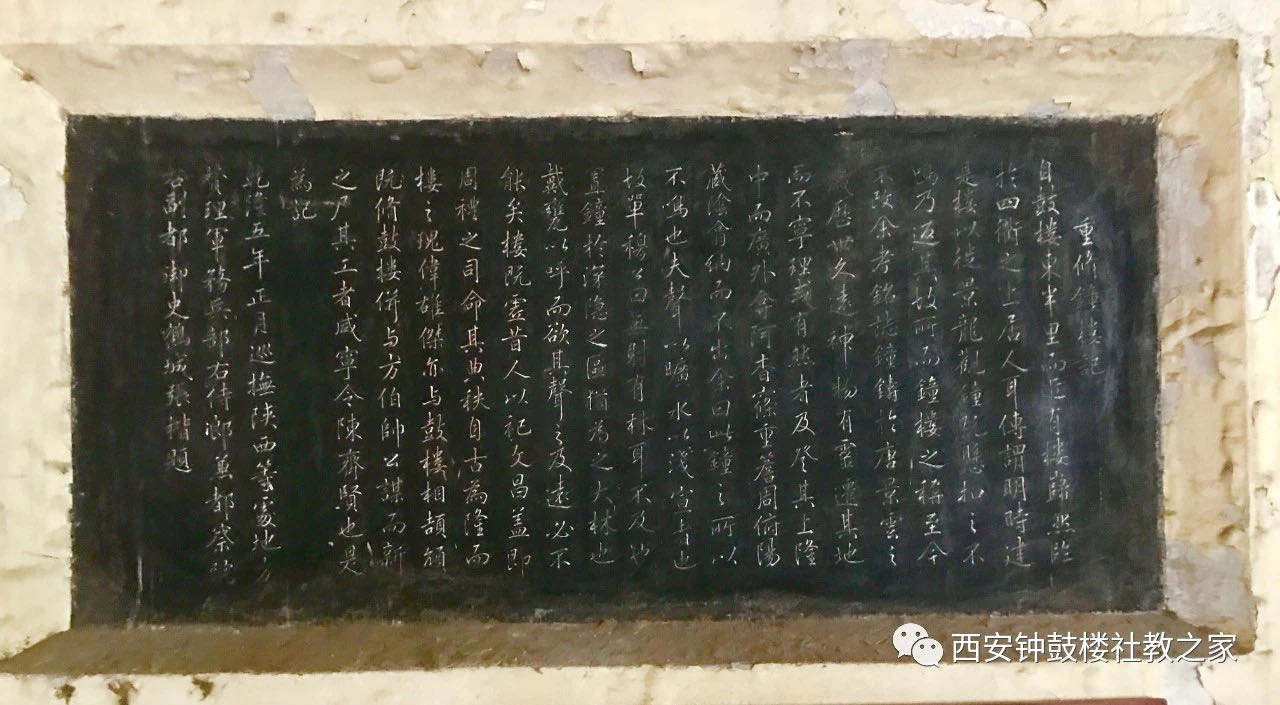 重脩鐘樓記
自鼓樓東半里而近有樓巋然臨
於四衢之上居人耳傳謂明時建
是樓以徙景龍觀鐘既懸扣之不
鳴乃迈其故所而鐘樓之稱至今
不改余考銘誌鐘鑄於唐景雲之
歲歷世久遠神物有靈遷其地
而不寧理或有然者及登其上隆
中而廣外含阿杳窱重簷周俯陽
蔵陰翕納而不出余曰此鐘之所以
不鳴也夫聲以曠水以淺宣古也
故單穆公曰無射有林耳不及也
置鐘於深隐之區猶為之大林也
戴甕以呼而欲其聲之及遠必不
能矣樓既虛昔人以祀文昌盖即
周禮之司命其典秩自古為隆而
樓之瑰偉雄傑亦与鼓樓相頡頏
既脩鼓樓併与方伯帥公謀而新
之尸其工者咸寧令陳齊賢也是
為記
乾隆五年正月巡撫陝西等處地方
贊理軍務兵部右侍郎兼都察院
右副都御史鶴城張楷題
西安钟鼓楼社教之家